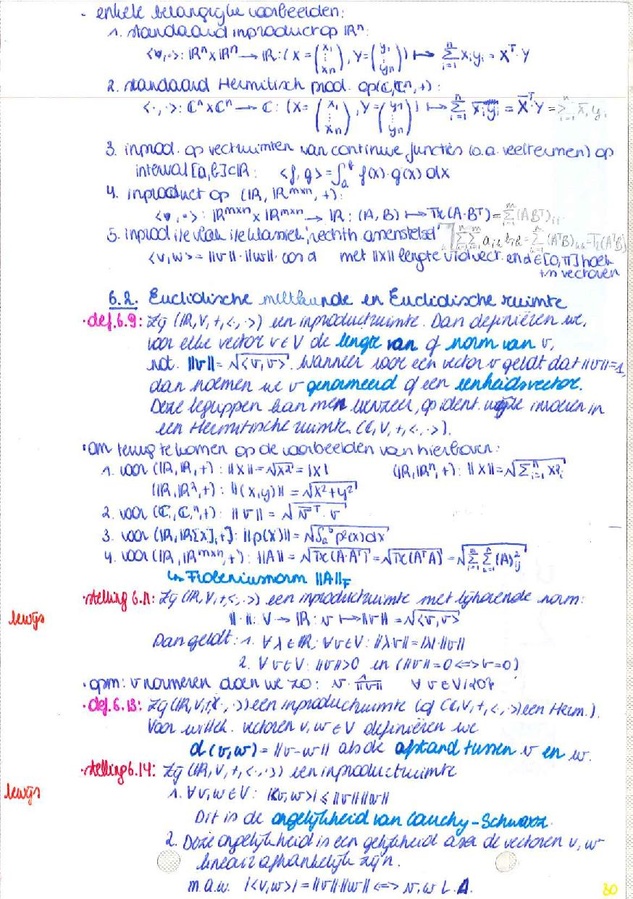 - enkele belangrijke voorbeelden:
1. standaard inproduct op ℝⁿ:
<·,·>: ℝⁿxℝⁿ → ℝ: (X = (x₁ ⋮ xₙ), Y = (y₁ ⋮ yₙ)) ↦ Σⁿᵢ₌₁ xᵢyᵢ = Xᵀ·Y
2. standaard Hermitisch prod. op (ℂ,ℂⁿ,+):
<·,·>: ℂⁿxℂⁿ → ℂ: (X = (x₁ ⋮ xₙ), Y = (y₁ ⋮ yₙ)) ↦ = X̄ᵀY = Σⁿᵢ₌₁ x̄ᵢyᵢ
3. inprod. op vectruimten van continue functies (o.a. veeltermen) op
interval [a,b]⊂ℝ: <f,g> = ∫ₐᵇ f(x)·g(x) dx
4. inproduct op (ℝ, ℝᵐˣⁿ, +):
<·,·>: ℝᵐˣⁿ x ℝᵐˣⁿ → ℝ: (A,B) ↦ Tr(A·Bᵀ) = Σ(ABᵀ)ᵢᵢ
5. inprod i/e vlak i/e klassiek rechth. assenstelsel
<v,w> = ||v||·||w||·cos α met ||x|| lengte v/d vect. en α∈[0,π] hoek
tsn vectoren
6.2. Euclidische meetkunde en Euclidische ruimte
· def. 6.9: Zij (ℝ,V,+,<·,·>) een inproductruimte. Dan definiëren we,
voor elke vector v∈V de lengte van of norm van v,
not. ||v|| = √<v,v>. Wanneer voor een vector v geldt dat ||v||=1,
dan noemen we v genormeerd of een eenheidsvector.
Deze begrippen kan men evenzeer, op ident. wijze invoeren in
een Hermitische ruimte (ℂ,V,+,<·,·>).
· om terug te komen op de voorbeelden van hierboven:
1. voor (ℝ,ℝ,+): ||X|| = √x² = |x| (ℝ,ℝⁿ,+): ||X|| = √Σⁿᵢ₌₁ xᵢ²
(ℝ,ℝ²,+): ||(x,y)|| = √x²+y²
2. voor (ℂ,ℂⁿ,+): ||v|| = √v̄ᵀ·v
3. voor (ℝ,ℝ[x],+): ||p(x)|| = √∫ₐᵇ p²(x)dx
4. voor (ℝ,ℝᵐˣⁿ,+): ||A|| = √Tr(A·Aᵀ) = √Tr(AᵀA) = √ΣΣ(A)²ᵢⱼ
↳ Frobeniusnorm ||A||F
· stelling 6.11: Zij (ℝ,V,+,<·,·>) een inproductruimte met bijhorende norm:
bewijs
||·||: V → ℝ: v ↦ ||v|| = √<v,v>
Dan geldt: 1. ∀λ∈ℝ: ∀v∈V: ||λv|| = |λ|·||v||
2. ∀v∈V: ||v||≥0 en (||v||=0 <=> v=0)
· opm: v normeren doen we zo: v·1/||v|| ∀v∈V\{0}
· def. 6.13: Zij (ℝ,V,+,<·,·>) een inproductruimte (of (ℂ,V,+,<·,·>) een Herm.).
Voor willek. vectoren v,w∈V definiëren we
d(v,w) = ||v-w|| als de afstand tussen v en w.
· stelling 6.14: Zij (ℝ,V,+,<·,·>) een inproductruimte
bewijs
1. ∀v,w∈V: |<v,w>| ≤ ||v||||w||
Dit is de ongelijkheid van Cauchy-Schwarz.
2. Deze ongelijkheid is een gelijkheid a.s.a de vectoren v,w
lineair afhankelijk zijn.
m.a.w. |<v,w>| = ||v||||w|| <=> v,w L.A.
80